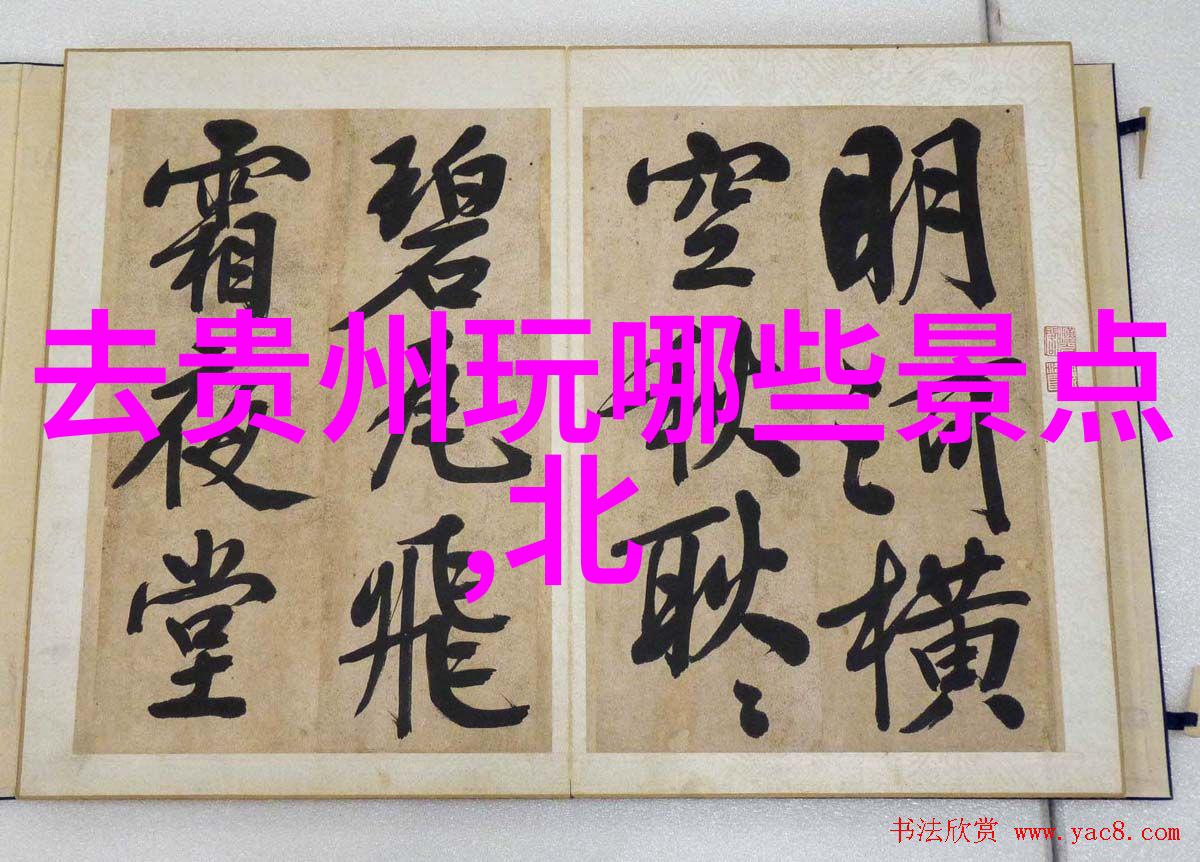 明河橫
空秋耿〻
碧瓦飛
霜夜堂
去贵州玩哪些景点
,北
书法欣赏 www.yac8.com